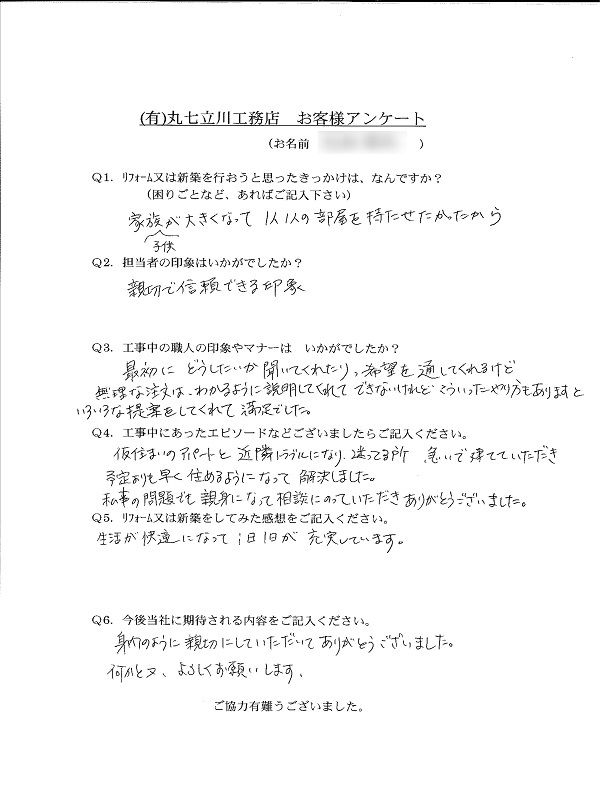 (有)丸七立川工務店　お客様アンケート
(お名前　　　　　　)
Q1．ﾘﾌｫｰﾑ又は新築を行おうと思ったきっかけは、なんですか？
(困りごとなど、あればご記入下さい)
家族が大きくなって 1人1人の部屋を持たせたかったから
子供
Q2．担当者の印象はいかがでしたか？
親切で信頼できる印象
Q3．工事中の職人の印象やマナーは　いかがでしたか？
最初に どうしたいか聞いてくれたり、希望を通してくれるけど
無理な注文は、わかるように説明してくれて できないけれど こういったやり方もありますと
いろいろな提案をしてくれて 満足でした。
Q4．工事中にあったエピソードなどございましたらご記入ください。
仮住まいのアパートと 近隣トラブルになり、迷ってる所 急いで建てていただき
予定よりも早く住めるようになって 解決しました。
私事の問題でも親身になって相談にのっていただきありがとうございました。
Q5．ﾘﾌｫｰﾑ又は新築をしてみた感想をご記入ください。
生活が快適になって 1日1日が 充実しています。
Q6．今後当社に期待される内容をご記入ください。
身内のように親切にしていただいてありがとうございました。
何かと又、よろしくお願いします、
ご協力有難うございました。